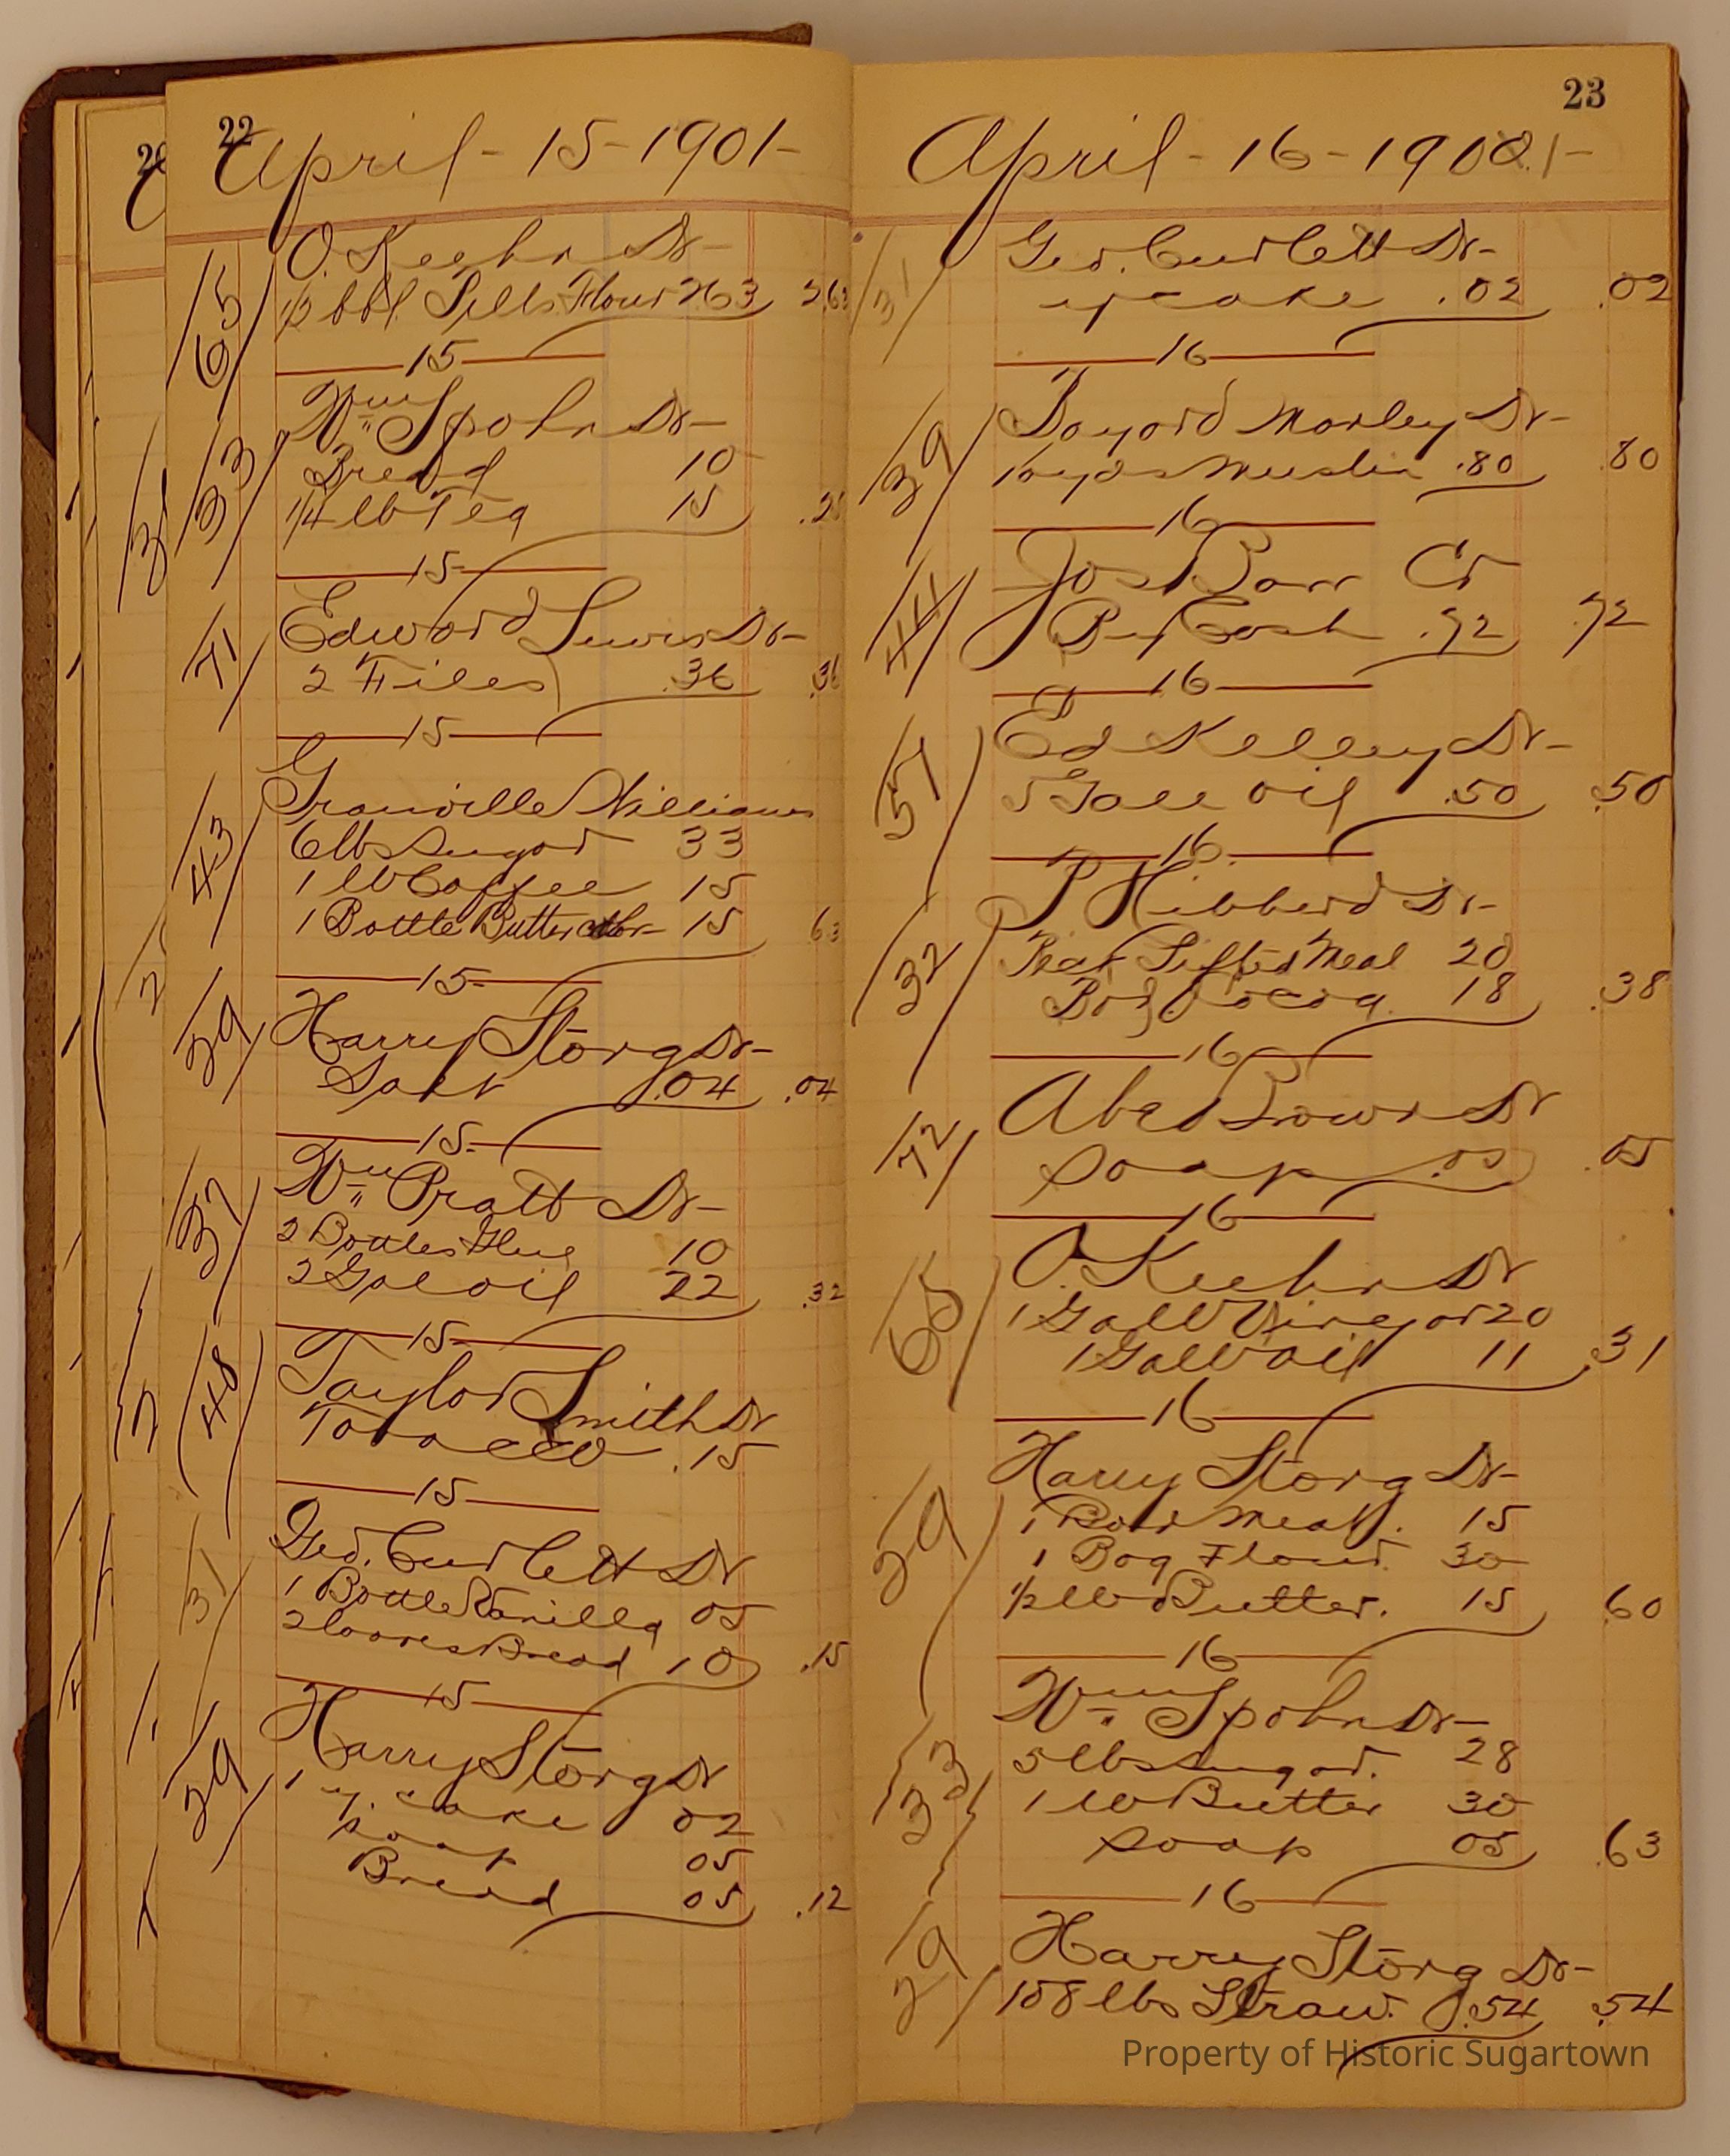 22
April - 15 - 1901 -
65
O. Keehn Dr -
1/2 bbl Pills Flour 2.63 2.63
15
33
Wm Spohn Dr -
Bread 10
1/4 lb Tea 15 .25
15
71
Edward Lewis Dr -
2 Files .36 .36
15
43
Granville Williams
6 lbs Sugar 33
1 lb Coffee 15
1 Bottle Butter color 15 63
15
29
Harry Storg Dr -
Salt .04 .04
15
37
Wm Pratt Dr -
2 Bottles Glue 10
2 Gal oil 22 .32
15
48
Taylor Smith Dr
Tobacco .15
15
31
Geo. Curlett Dr
1 Bottle Vanilla 05
2 loaves Bread 10 .15
15
29
Harry Storg Dr
1 y. cake 02
soap 05
Bread 05 .12
23
April - 16 - 1901 -
31
Geo. Curlett Dr -
y cake .02 .02
16
39
Bayard Marley Dr -
10 yds Muslin .80 .80
16
44
Jos Barr Cr
By Cash .92 .92
16
57
Ed Kelley Dr -
5 Gall oil .50 .50
16
32
P Hibberd Dr -
Sifted Meal 20
Box Cocoa 18 .38
16
72
Abe Brown Dr
Soap .05 .05
16
65
O. Keehn Dr
1 Gall Vinegar 20
1 Gall oil 11 .31
16
29
Harry Storg Dr -
1 Meal. 15
1 Bag Flour. 30
1/2 lb Butter. 15 60
16
33
Wm Spohn Dr -
5 lbs Sugar. 28
1 lb Butter 30
soap 05 .63
16
29
Harry Storg Dr -
108 lbs Straw. .54 .54
Property of Historic Sugartown